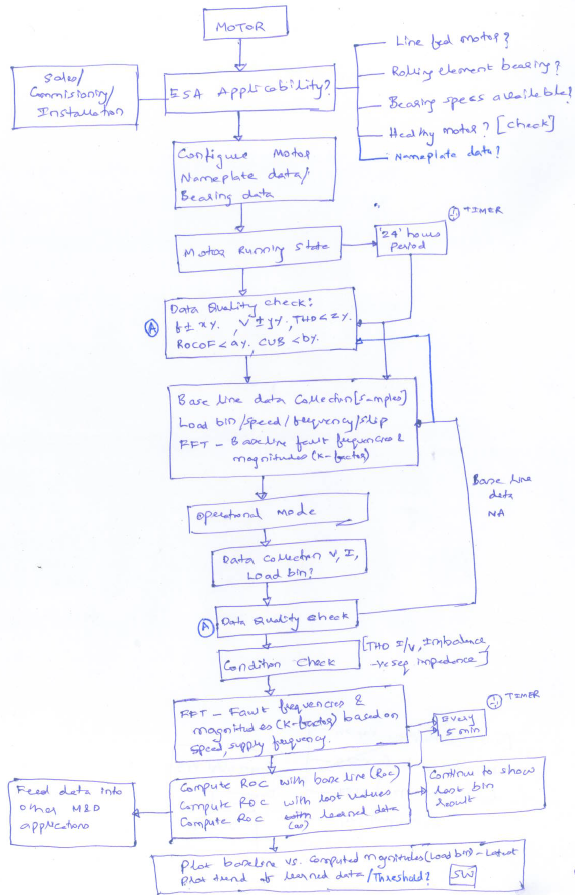 MOTOR
Sales/
Commisioning/
Installation
ESA Applicability?
Line fed motor?
Rolling element bearing?
Bearing specs available?
Healthy motor? [Check]
Nameplate data?
Configure Motor
Nameplate data/
Bearing data
Motor Running State
'24' hours
period
TIMER
A
Data Quality check:
f ± x%, V ± y%, THD < z%.
ROCOF < a%, CUB < b%.
Base line data Collection [Samples]
Load bin/speed/frequency/slip
FFT - Baseline fault frequencies &
magnitudes (K-factor)
Base line
data
NA
Operational Mode
Data Collection V, I,
Load bin?
A
Data Quality check
Condition Check
[THD I/V, Imbalance
-ve seq impedance]
FFT - Fault frequencies &
magnitudes (K-factor) based on
Speed, supply frequency.
TIMER
Every
5 min
Feed data into
other M&D
applications
Compute ROC with base line (Roc)
Compute ROC with last values
Compute ROC with learned data
Continue to show
last bin
result
Plot baseline vs. Computed magnitudes (Load bin) - Latest
Plot trend of learned data/Threshold? SW